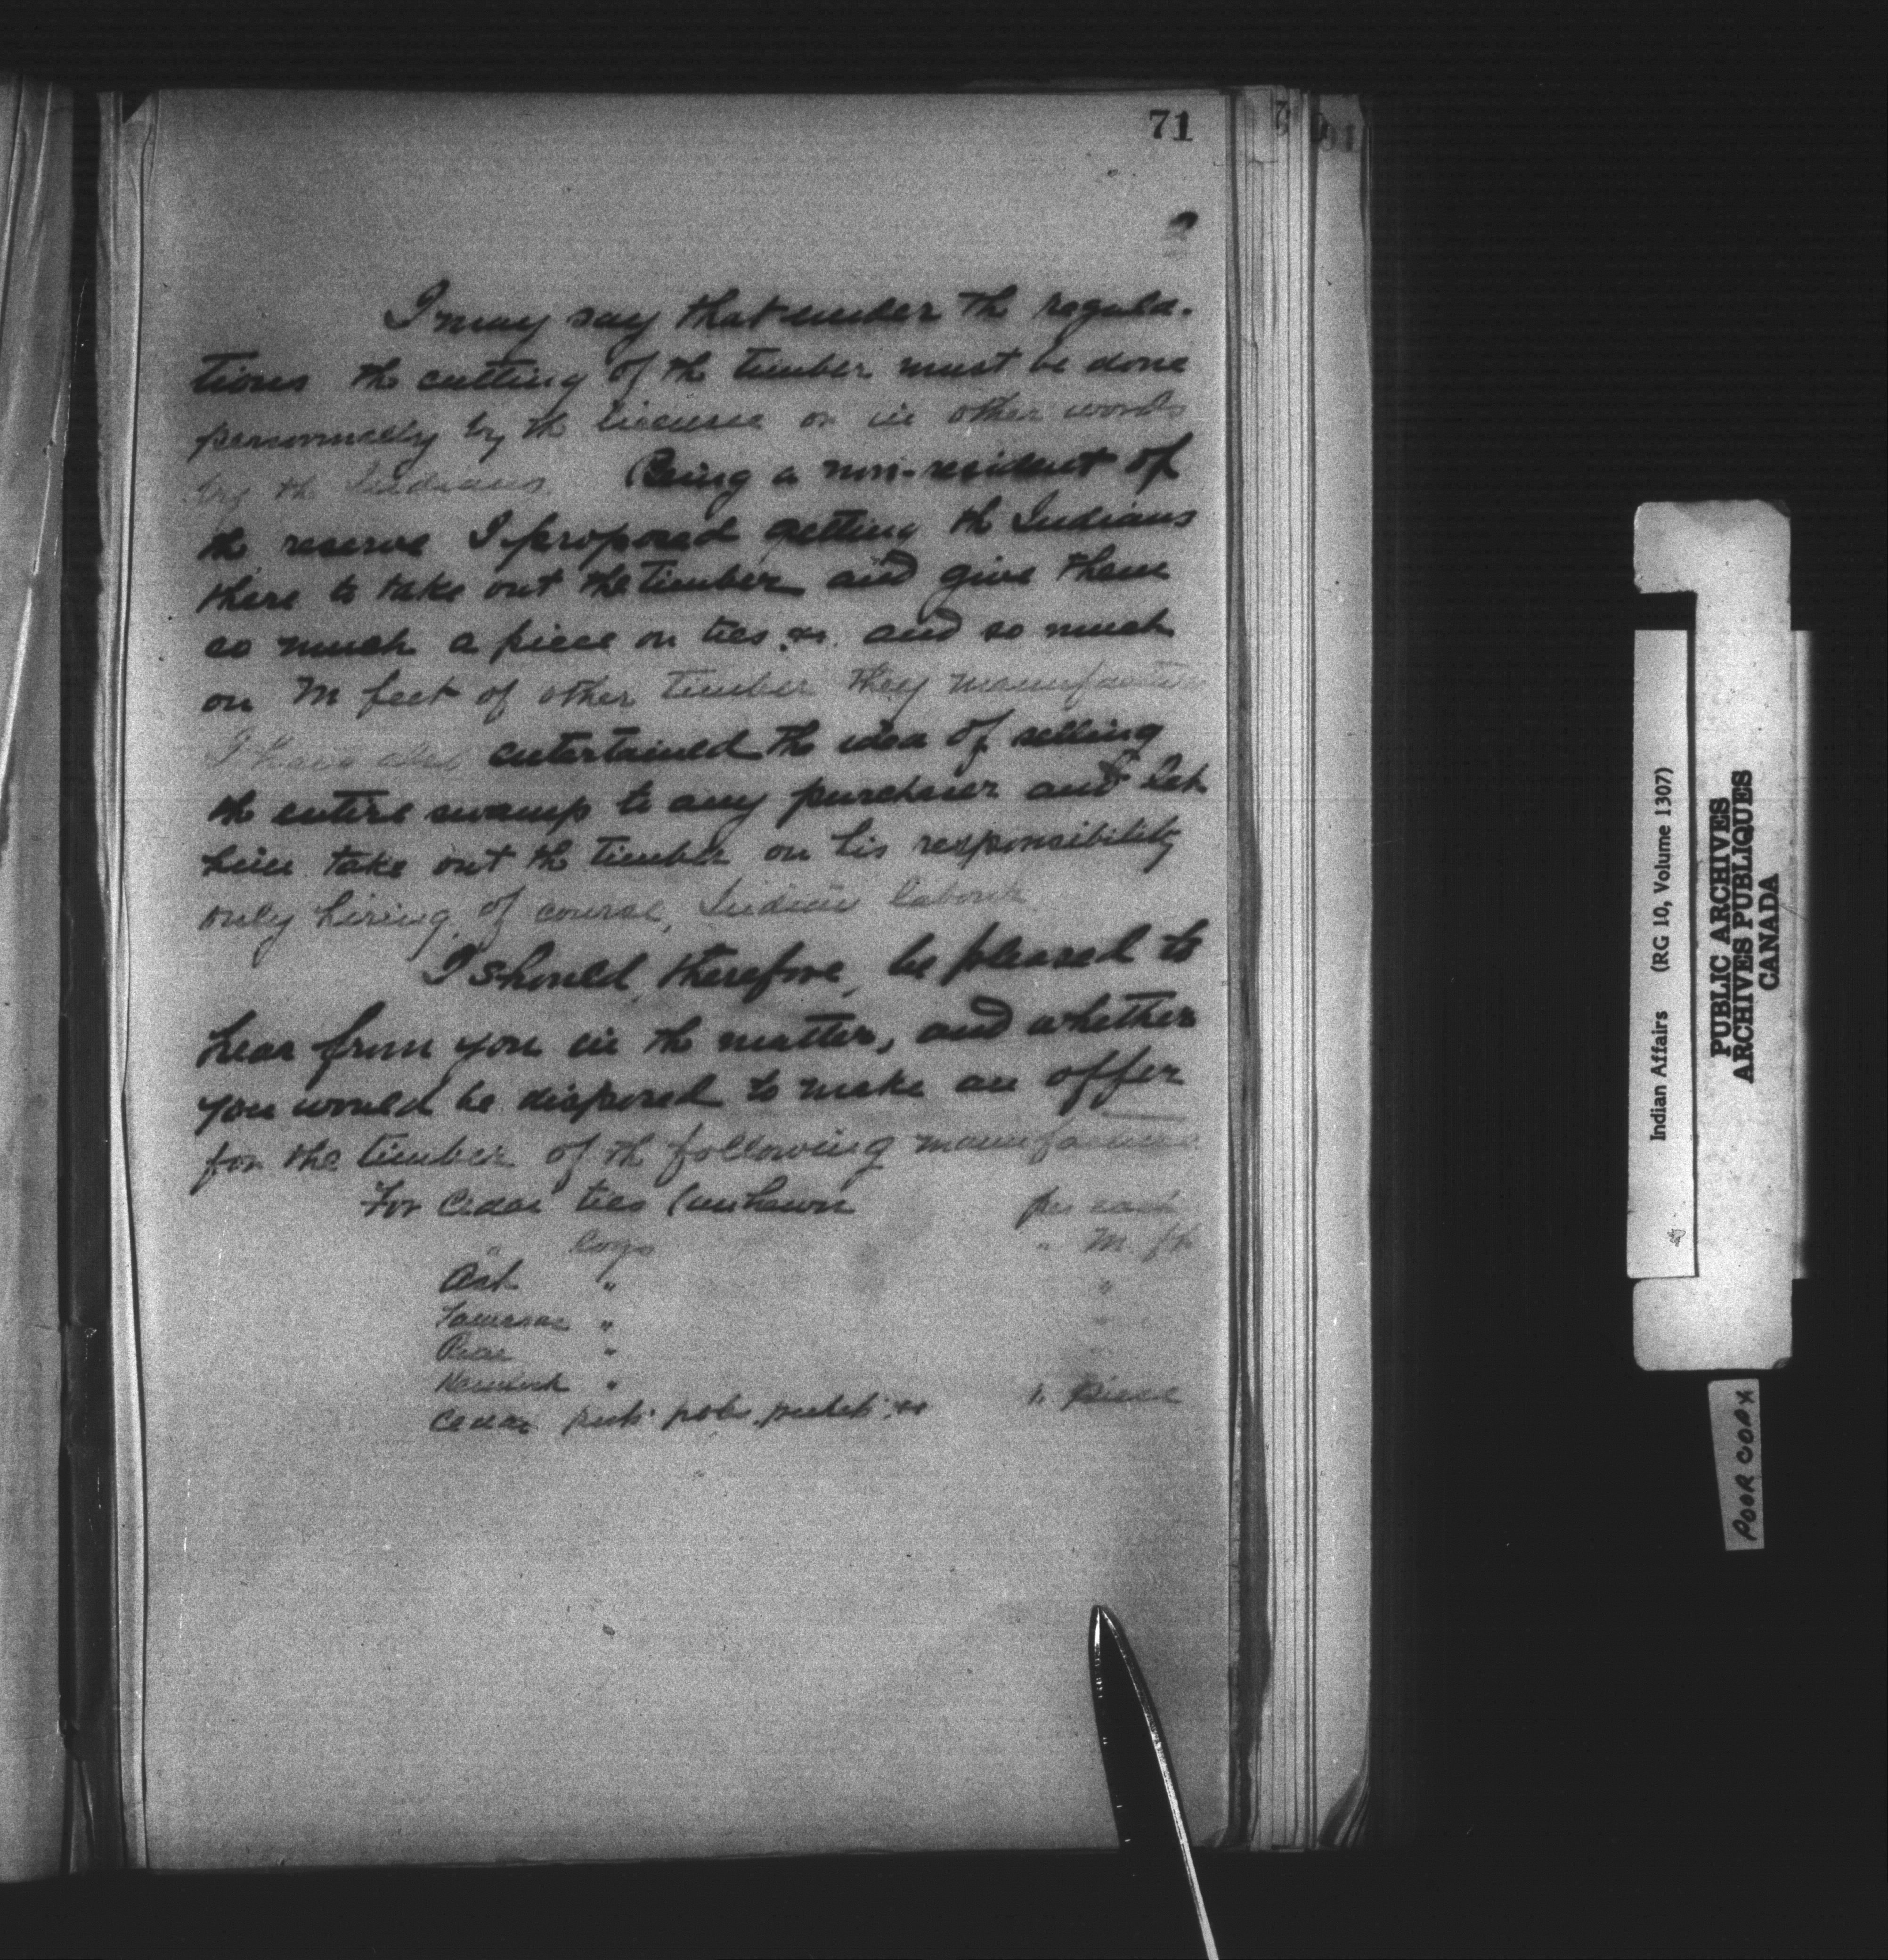 71
2
I may say that under the regula-
tions the cutting of the timber must be done
personnelly by the licensee or in other words
by the Indians. Being a non-resident of
the reserve I proposed getting the Indians
there to take out the timber and give them
so much a piece on ties &c. and so much
on M feet of other timber they manufacture
I have also entertained the idea of selling
the entire swamp to any purchaser and let
him take out the timber on his responsibility
only hiring, of course, Indian labour
I should, therefore, be pleased to
hear from you in the matter, and whether
you would be disposed to make an offer
for the timber of the following manufacture
For Cedar ties (unhewn per each
" Logs " M. ft
Ash " "
Tamarac " "
Pine " "
Hemlock "
Cedar posts poles, pickets &c " piece
Indian Affairs (RG 10, Volume 1307)
PUBLIC ARCHIVES
ARCHIVES PUBLIQUES
CANADA
POOR COPY